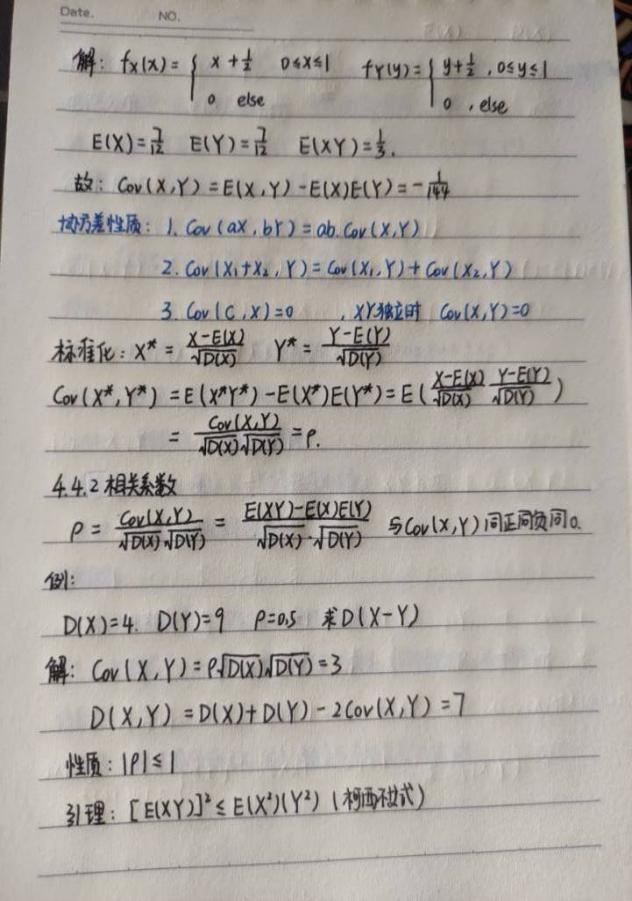 Date. NO.
解: fX(x)= { x+1/2 0≤x≤1 fY(y)= { y+1/2 , 0≤y≤1
0 else 0 , else
E(X)=7/12 E(Y)=7/12 E(XY)=1/3.
故: Cov(X,Y)=E(X,Y)-E(X)E(Y)=-1/144
协方差性质: 1. Cov(aX,bY)=ab.Cov(X,Y)
2. Cov(X₁+X₂,Y)=Cov(X₁,Y)+Cov(X₂,Y)
3. Cov(C,X)=0 , XY独立时 Cov(X,Y)=0
标准化: X*=(X-E(X))/√D(X) Y*=(Y-E(Y))/√D(Y)
Cov(X*,Y*)=E(X*Y*)-E(X*)E(Y*)=E((X-E(X))/√D(X) (Y-E(Y))/√D(Y))
=Cov(X,Y)/(√D(X)√D(Y))=ρ.
4.4.2 相关系数
ρ=Cov(X,Y)/(√D(X)√D(Y))=(E(XY)-E(X)E(Y))/(√D(X)·√D(Y)) 与Cov(X,Y)同正同负同0.
例:
D(X)=4. D(Y)=9 ρ=0.5 求D(X-Y)
解: Cov(X,Y)=ρ√D(X)√D(Y)=3
D(X,Y)=D(X)+D(Y)-2Cov(X,Y)=7
性质: |ρ|≤1
引理: [E(XY)]²≤E(X²)(Y²) (柯西不式)